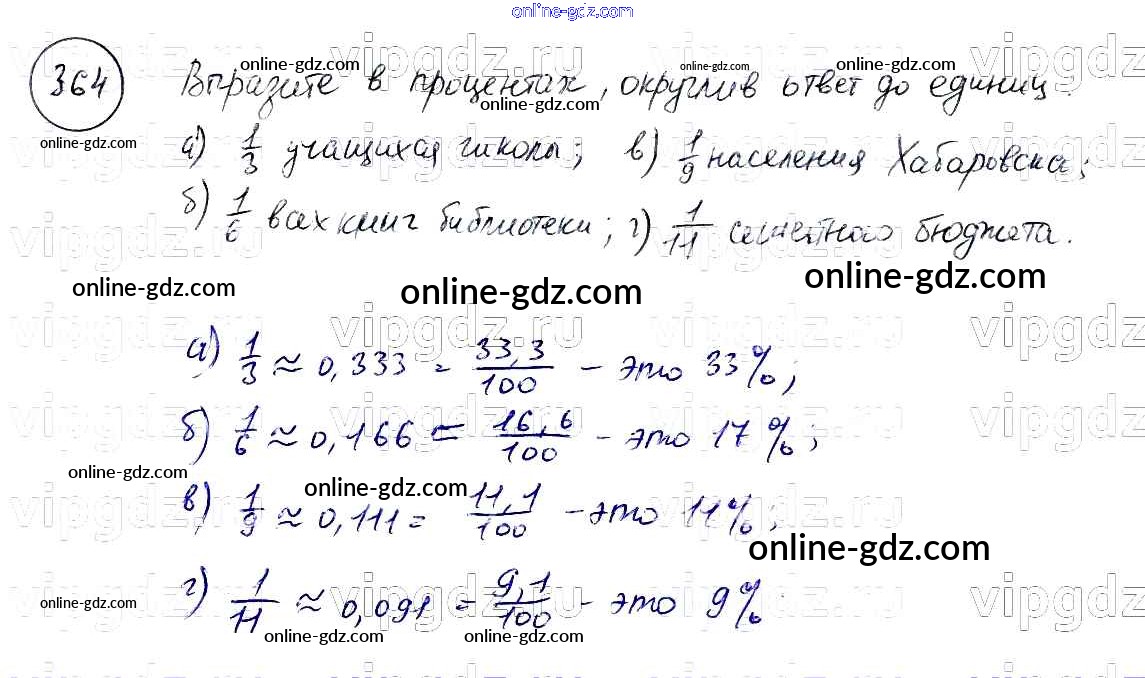 online-gdz.com
364 Выразите в процентах, округлив ответ до единиц.
а) 1/3 учащихся школы; в) 1/9 населения Хабаровска;
б) 1/6 всех книг библиотеки; г) 1/11 семейного бюджета.
а) 1/3 ≈ 0,333 = 33,3/100 - это 33%;
б) 1/6 ≈ 0,166 = 16,6/100 - это 17%;
в) 1/9 ≈ 0,111 = 11,1/100 - это 11%;
г) 1/11 ≈ 0,091 = 9,1/100 - это 9%
vipgdz.ru